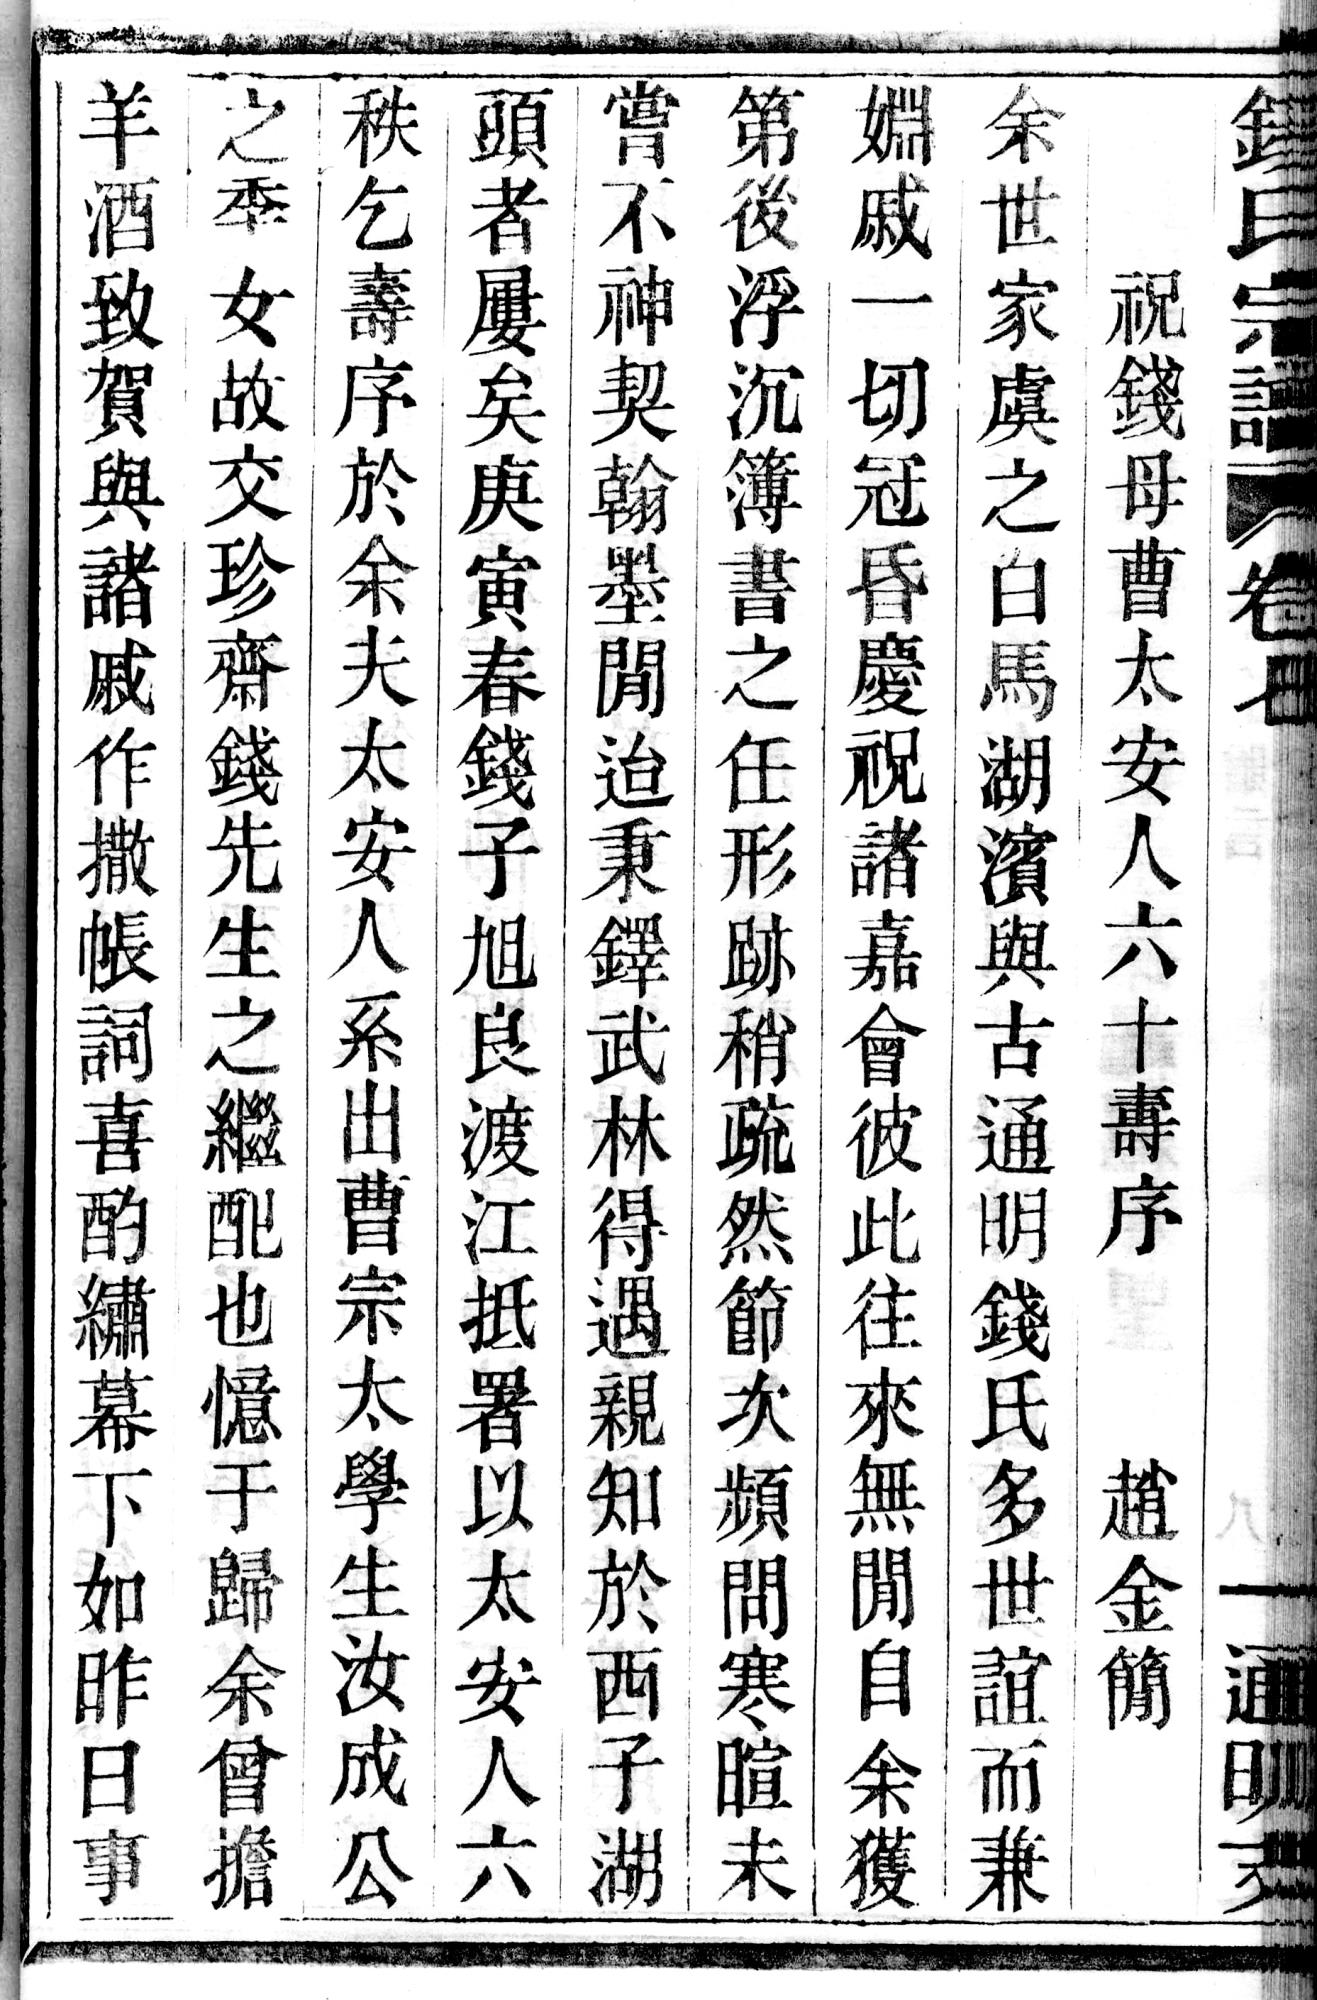 錢氏宗譜 卷 一 通明
祝錢母曹太安人六十壽序 趙金簡
余世家虞之白馬湖濱與古通明錢氏多世誼而兼
婣戚一切冠昏慶祝諸嘉會彼此往來無閒自余獲
第後浮沉簿書之任形跡稍疏然節次頻問寒暄未
嘗不神契翰墨閒迨秉鐸武林得遇親知於西子湖
頭者屢矣庚寅春錢子旭良渡江抵署以太安人六
秩乞壽序於余夫太安人系出曹宗太學生汝成公
之季女故交珍齋錢先生之繼配也憶于歸余曾擔
羊酒致賀與諸戚作撒帳詞喜酌繡幕下如昨日事